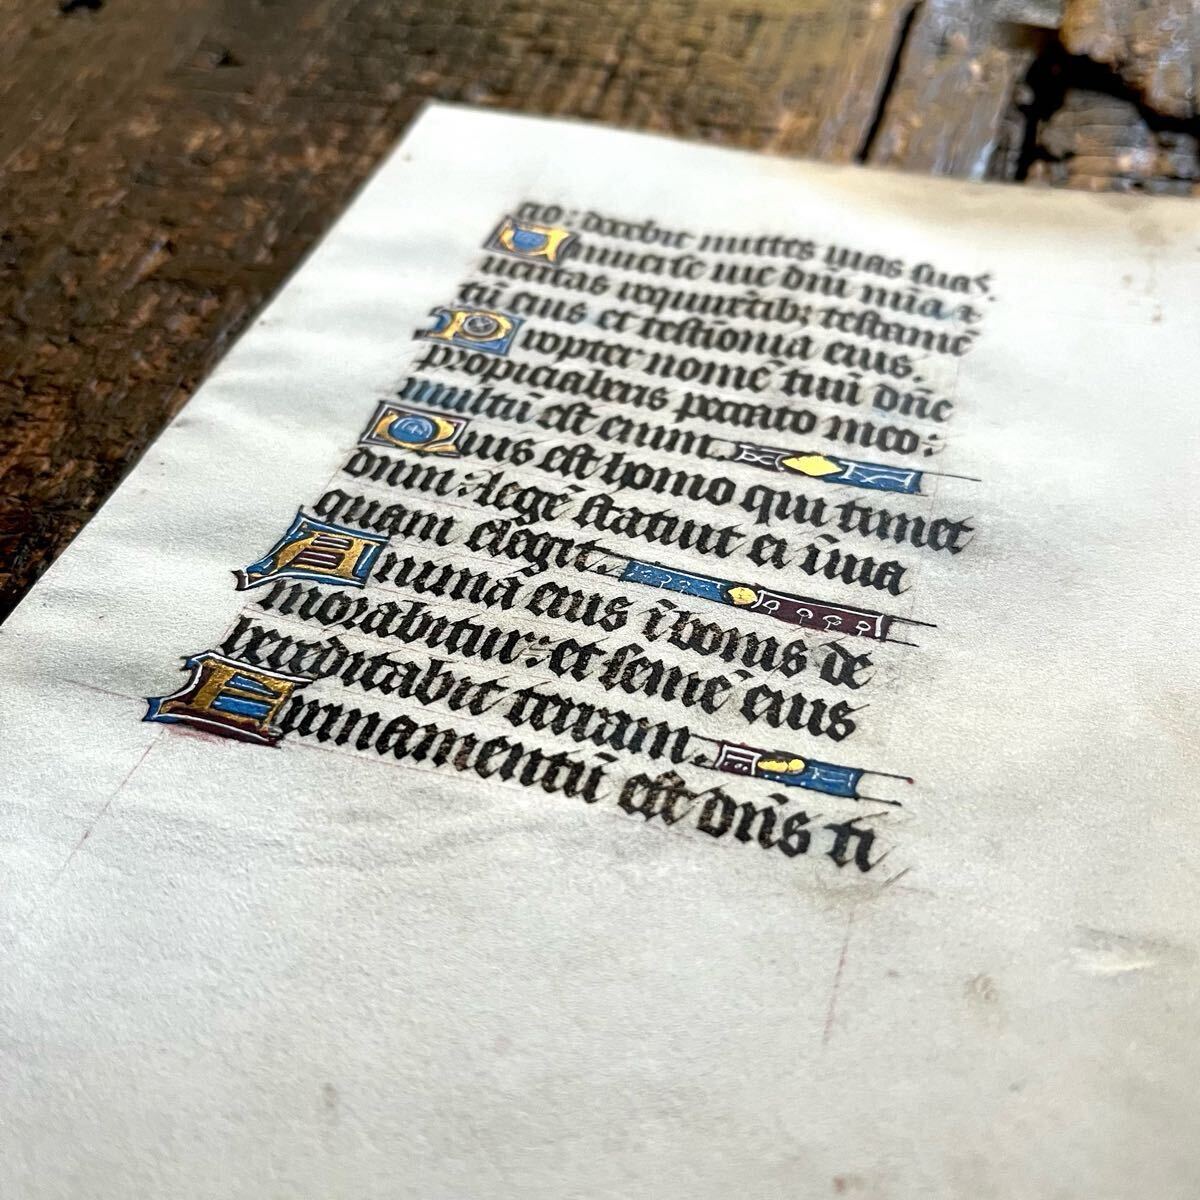 cio: docebit mittes vias suas.
Uniuerse uie dñi mĩa ⁊
ueritas requirẽtib; testamẽ
tũ eius et testĩonia eius.
Propter nomẽ tuũ dñe
propiciaberis peccato meo:
multũ est enim.
Quis est homo qui timet
dnm: legẽ statuit ei ĩ uia
quam elegit.
Anima eius ĩ bonis de
morabitur: et semẽ eius
hereditabit terram.
Firmamentũ est dñs ti